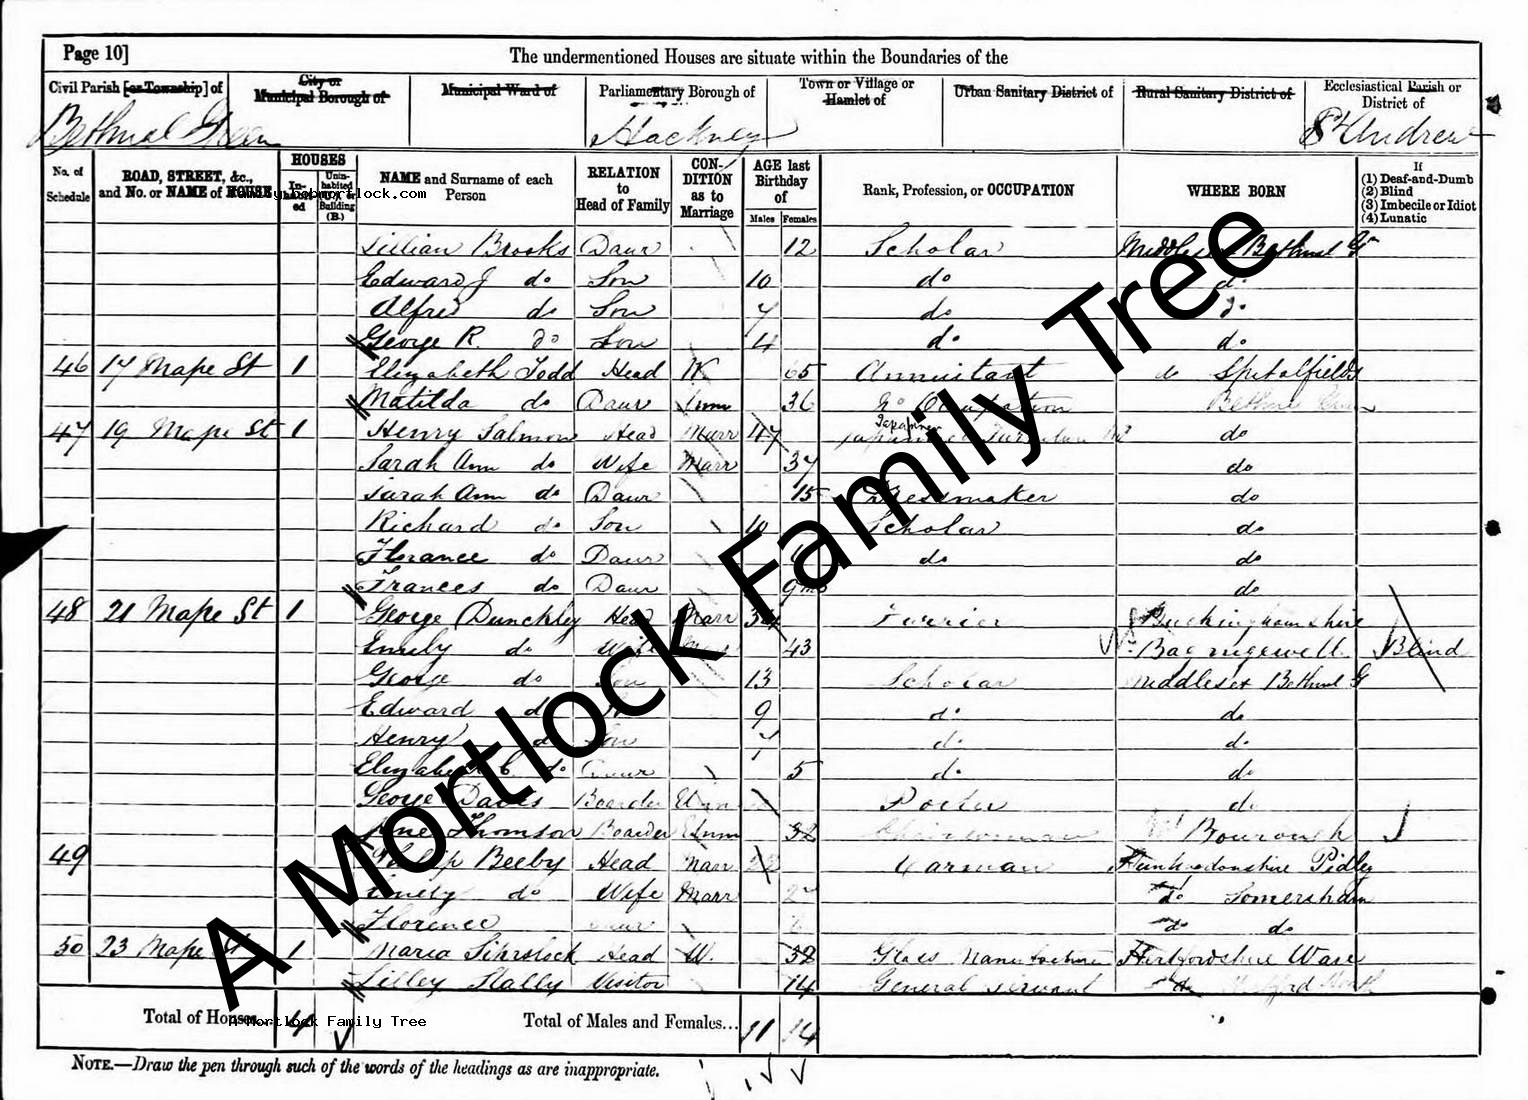 Page 10]
The undermentioned Houses are situate within the Boundaries of the
Civil Parish [or Township] of
City or Municipal Borough of
Municipal Ward of
Parliamentary Borough of
Town or Village or Hamlet of
Urban Sanitary District of
Rural Sanitary District of
Ecclesiastical Parish or District of
Bethnal Green Hackney St Andrew
No. of Schedule
ROAD, STREET, &c., and No. or NAME of HOUSE
HOUSES
Inhabited
Uninhabited (U.), or Building (B.)
NAME and Surname of each Person
RELATION to Head of Family
CONDITION as to Marriage
AGE last Birthday of
Males Females
Rank, Profession, or OCCUPATION
WHERE BORN
If
(1) Deaf-and-Dumb
(2) Blind
(3) Imbecile or Idiot
(4) Lunatic
family.bobmortlock.com
Lillian Brooks Daur 12 Scholar Middlesex Bethnal G
Edward J do Son 10 do do
Alfred do Son 7 do do
George R. do Son 4 do do
46 17 Mape St 1 Elizabeth Todd Head W 65 Annuitant do Spitalfields
Matilda do Daur Unm 36 No Occupation Bethnal Green
47 19 Mape St 1 Henry Salmon Head Marr 47 Japanner do
Sarah Ann do Wife Marr 37 do
Sarah Ann do Daur 15 Dressmaker do
Richard do Son 10 Scholar do
Florance do Daur do do
Frances do Daur 9 mo do
48 21 Mape St 1 George Dunckley Head Marr 34 Furrier Buckinghamshire
Emily do Wife 43 Blind
George do Son 13 Scholar Middlesex Bethnal G
Edward do 9 do do
Henry do Son 7 do do
Elizabeth C. do Daur 5 do do
George Davis Boarder Unm Porter do
Jane Thomson Boarder Unm 32 Charwoman Bourough
49 Philip Beeby Head Marr Carman Huntingdonshire Pidley
Emily do Wife Marr 27 do Somersham
Florence Daur do do
50 23 Mape St 1 Maria Head W. 38 Glass Manufacturer Hertfordshire Ware
Lilley Hally Visitor 14 General Servant do
Total of Houses... 4
Total of Males and Females... 11 14
A Mortlock Family Tree
NOTE.—Draw the pen through such of the words of the headings as are inappropriate.
A Mortlock Family Tree